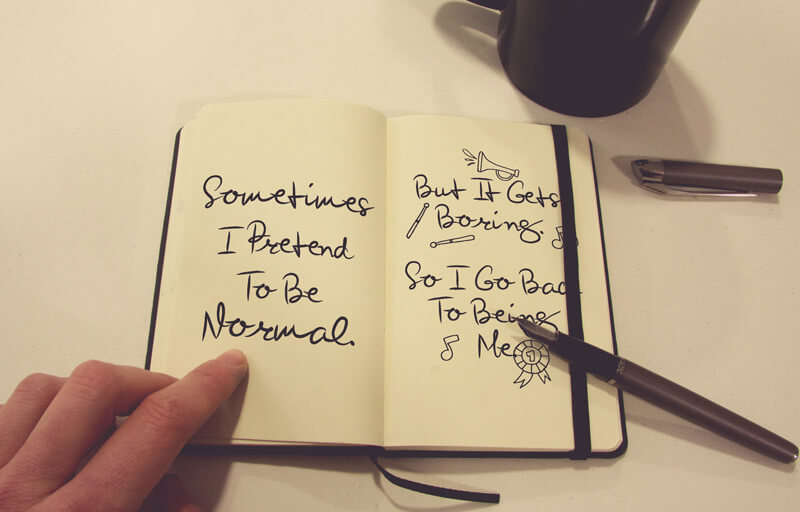 Sometimes
I Pretend
To Be
Normal.
But It Gets
Boring.
So I Go Bac
To Being
Me